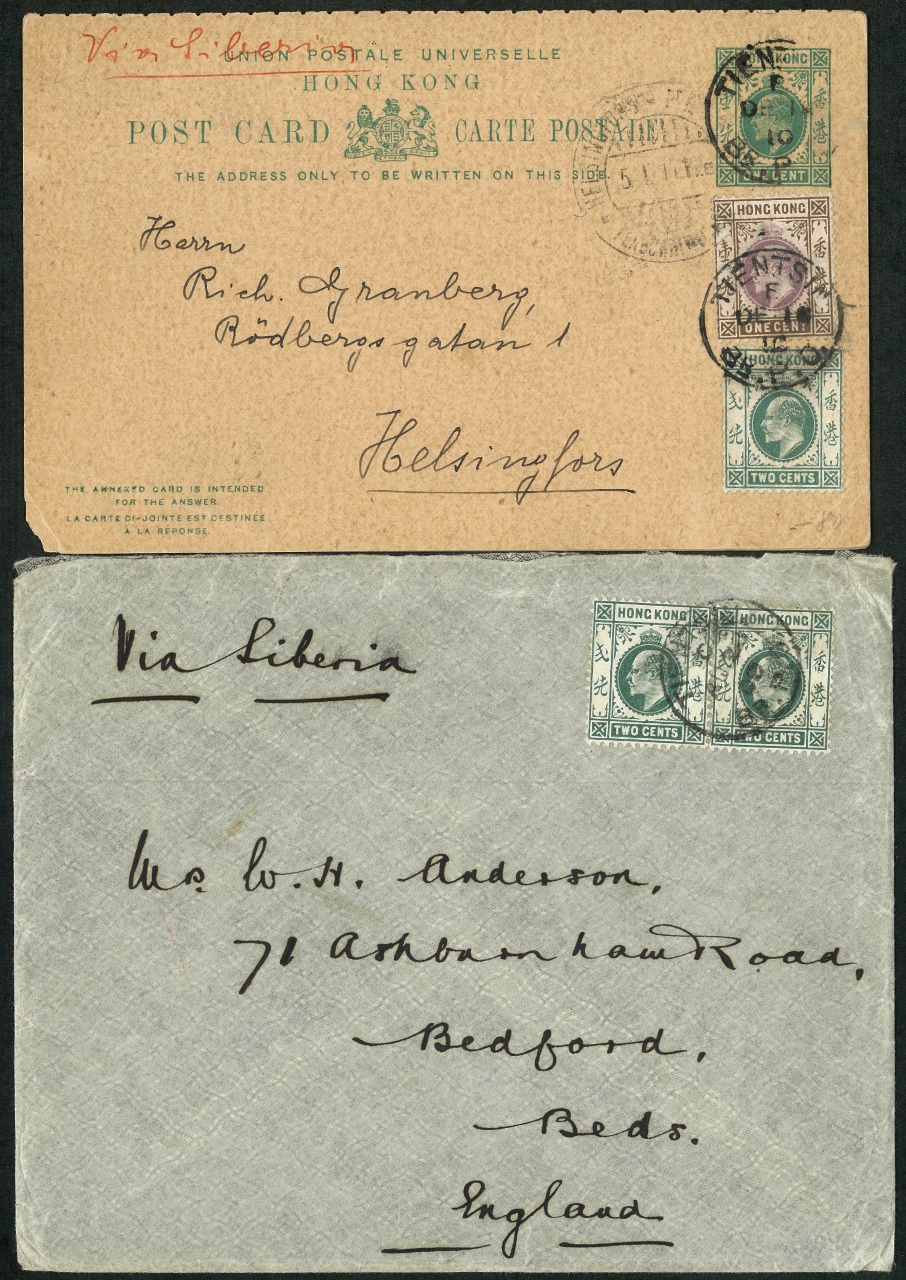 Via Siberia
UNION POSTALE UNIVERSELLE
HONG KONG
POST CARD CARTE POSTALE
THE ADDRESS ONLY TO BE WRITTEN ON THIS SIDE.
HONG KONG
香港
ONE CENT
TIEN
F
DE
10
BR. P.
HELSINGFORS
5.I.11
HONG KONG
香港
ONE CENT
TIENTSIN
F
DE
10
BR. P.O.
HONG KONG
香港
TWO CENTS
Herrn
Rich. Granberg,
Rödbergsgatan 1
Helsingfors
THE ANNEXED CARD IS INTENDED
FOR THE ANSWER.
LA CARTE CI-JOINTE EST DESTINÉE
À LA RÉPONSE.
Via Siberia
HONG KONG HONG KONG
香港 香港
TWO CENTS TWO CENTS
Mrs. W. H. Anderson,
71 Ashburnham Road,
Bedford,
Beds.
England